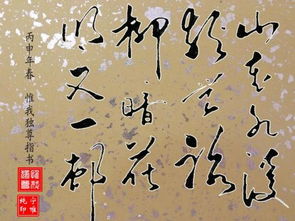 山重水複
疑無路
柳暗花
明又一邨
丙申年春 惟我独尊指书